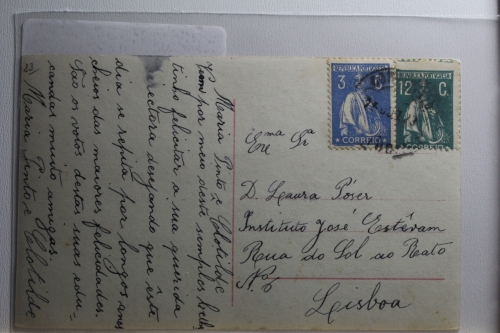 Maria Pinto e Clotilde
Vem por meio deste simples
tinho felicitar a sua querida
directora desejando que êste
dia se repita por longos anos
cheios das maiores felicidades.
São os votos destas suas edu-
candas muito amigas
Maria Pinto e Clotilde
REPUBLICA PORTUGUESA
3 C.
CORREIO
REPUBLICA PORTUGUESA
12 C.
CORREIO
Exma Sra
D. Laura Póser
Instituto José Estêvam
Rua do Sol ao Rato
Nº 6
Lisboa